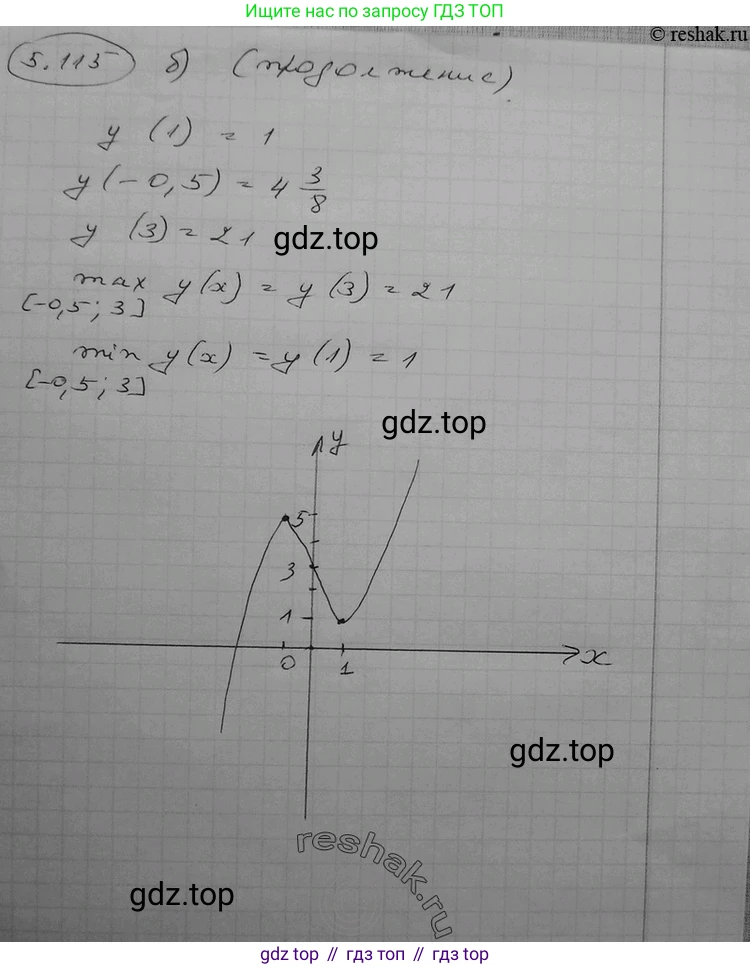 Ищите нас по запросу ГДЗ ТОП
© reshak.ru
5.115 б) (продолжение)
y (1) = 1
y(-0,5) = 4 3/8
y (3) = 21
gdz.top
max y(x) = y (3) = 21
[-0,5; 3]
min y(x) = y(1) = 1
[-0,5; 3]
gdz.top
y
5
3
1
0 1 x
gdz.top
reshak.ru
gdz.top
gdz top // гдз топ // gdz top